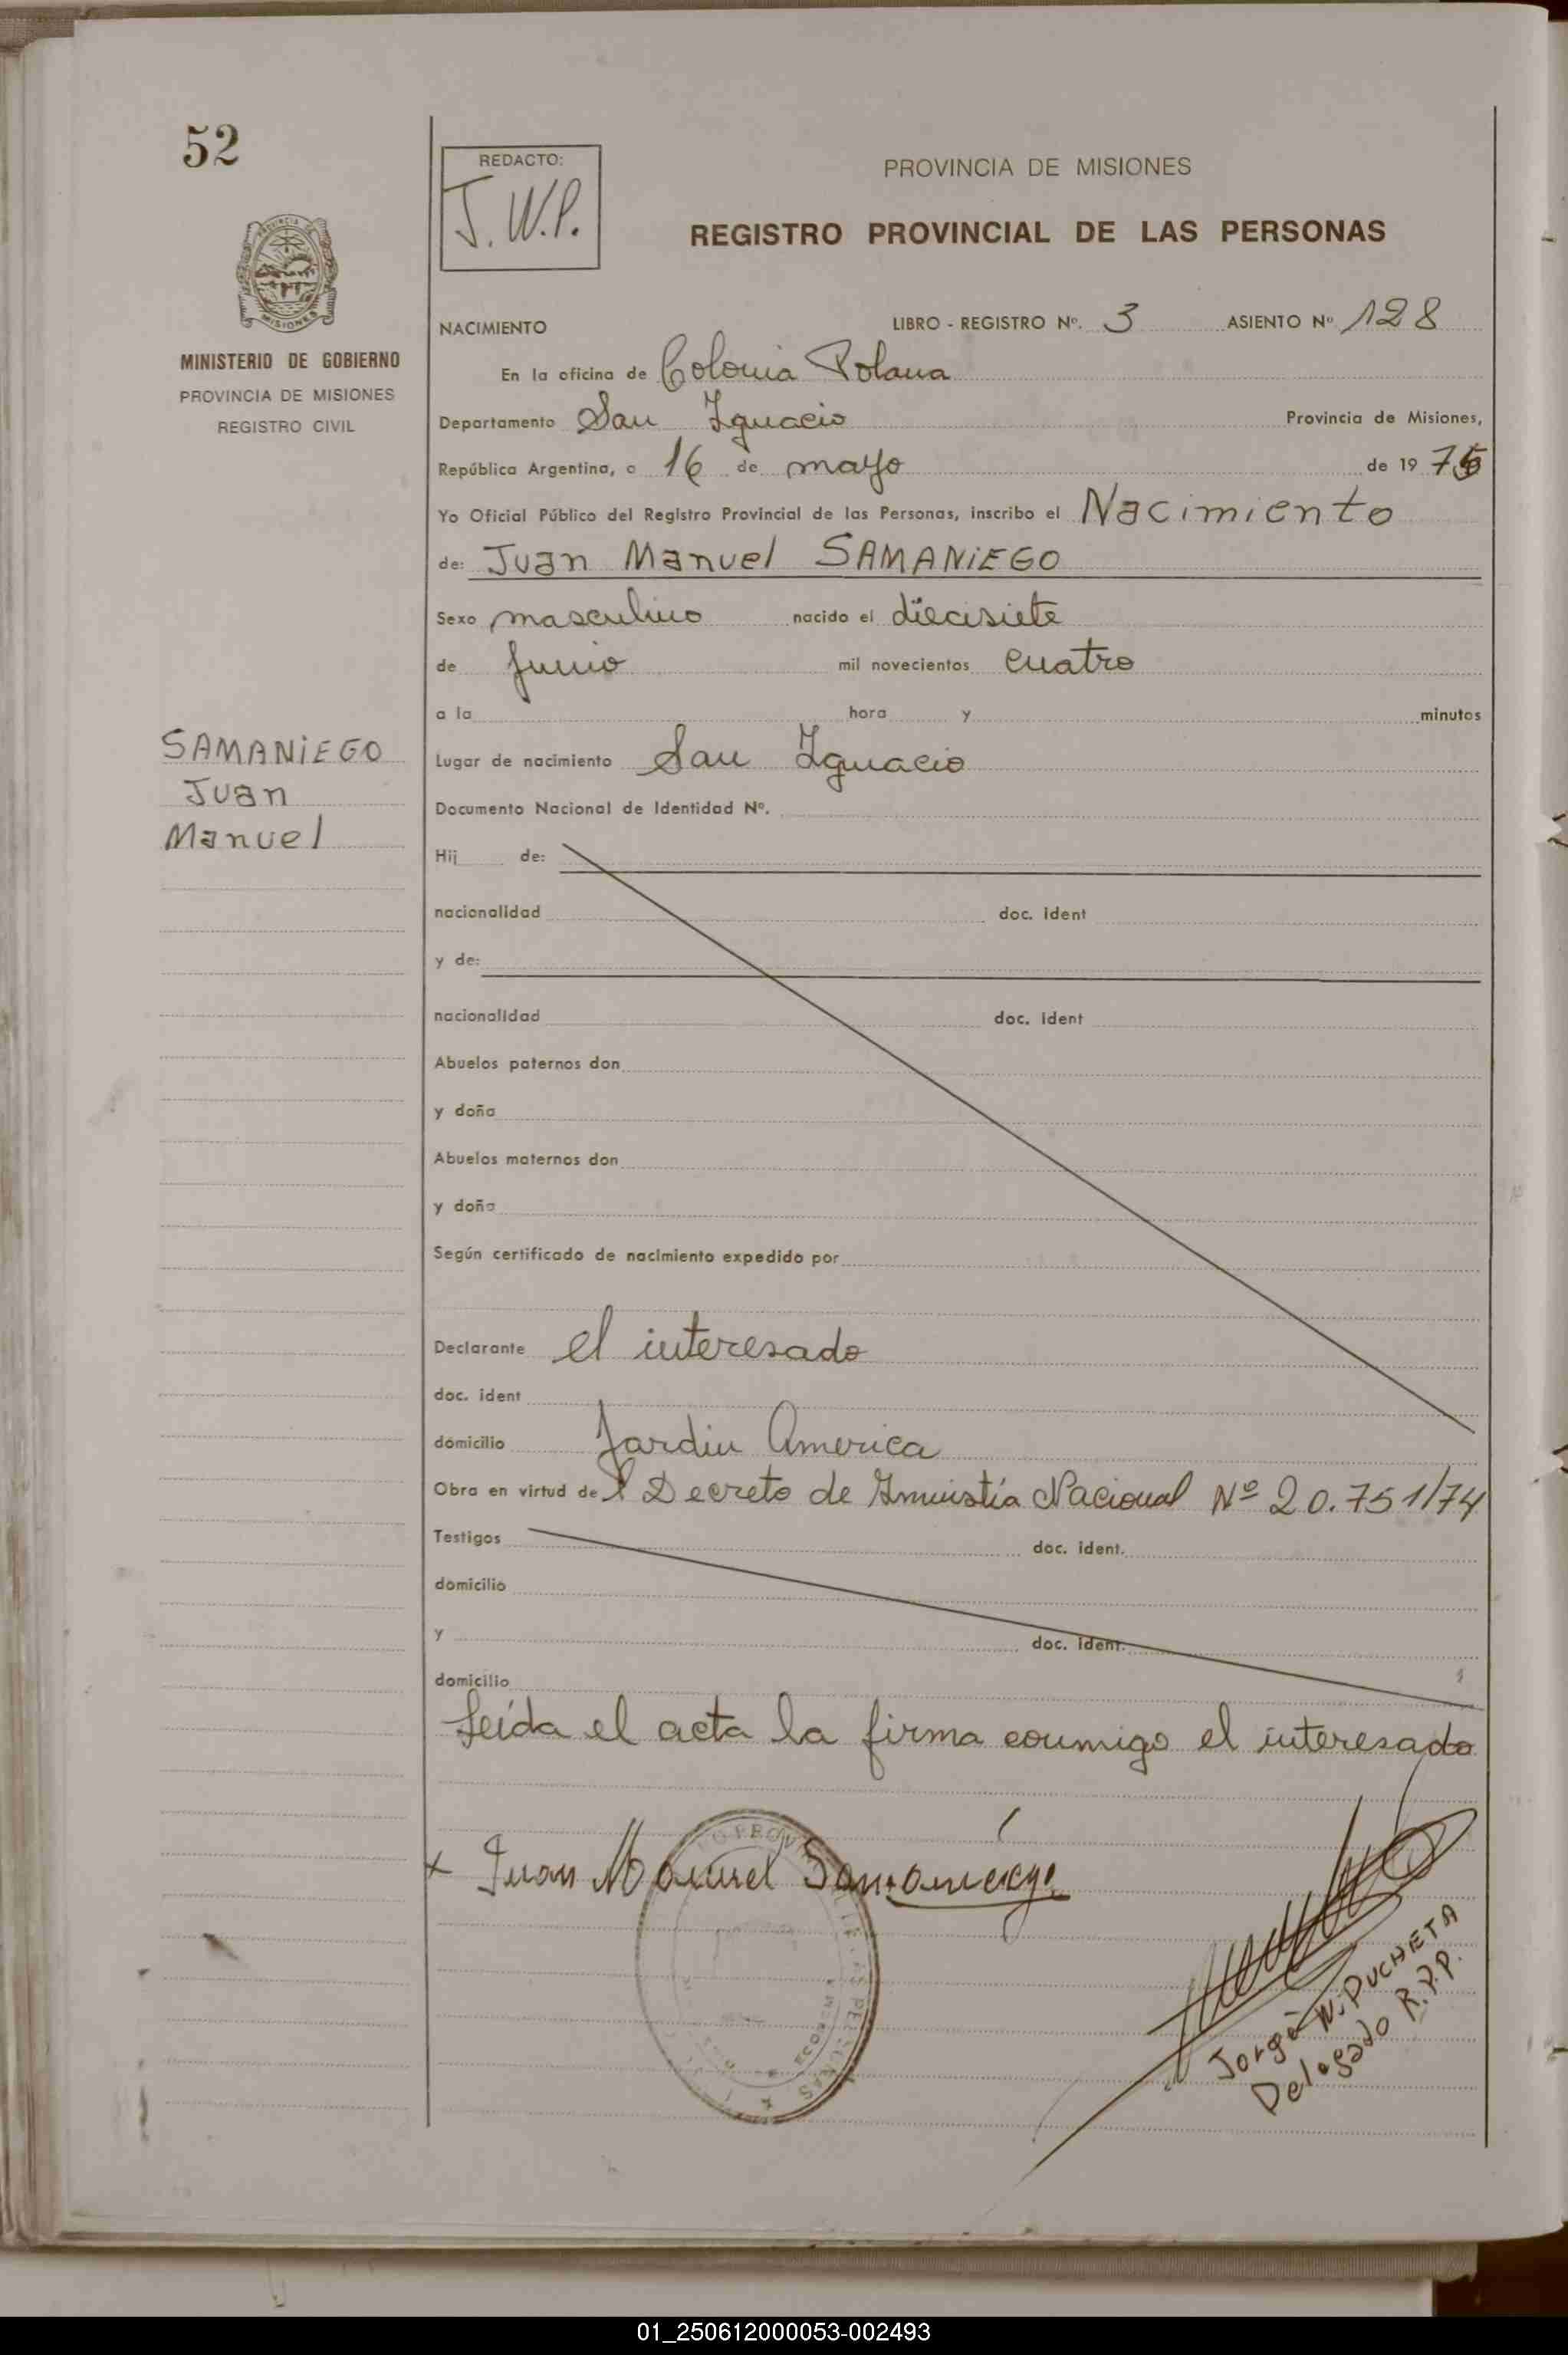 52
REDACTO:
J.W.P.
PROVINCIA DE MISIONES
REGISTRO PROVINCIAL DE LAS PERSONAS
MISIONES
MINISTERIO DE GOBIERNO
PROVINCIA DE MISIONES
REGISTRO CIVIL
NACIMIENTO LIBRO - REGISTRO Nº. 3 ASIENTO Nº 128
En la oficina de Colonia Polana
Departamento San Ignacio Provincia de Misiones,
República Argentina, a 16 de mayo de 19 75
Yo Oficial Público del Registro Provincial de las Personas, inscribo el Nacimiento
de: Juan Manuel SAMANIEGO
Sexo masculino nacido el diecisiete
de Junio mil novecientos cuatro
a la hora y minutos
SAMANIEGO
Juan
Manuel
Lugar de nacimiento San Ignacio
Documento Nacional de Identidad Nº.
Hij de:
nacionalidad doc. ident
y de:
nacionalidad doc. ident
Abuelos paternos don
y doña
Abuelos maternos don
y doña
Según certificado de nacimiento expedido por
Declarante el interesado
doc. ident
domicilio Jardin America
Obra en virtud del Decreto de Amnistía Nacional Nº 20.751/74
Testigos doc. ident.
domicilio
y doc. ident.
domicilio
Leída el acta la firma conmigo el interesado
x Juan Manuel Samaniego
Jorge W. PUCHETA
Delegado R.P.P.
01_250612000053-002493